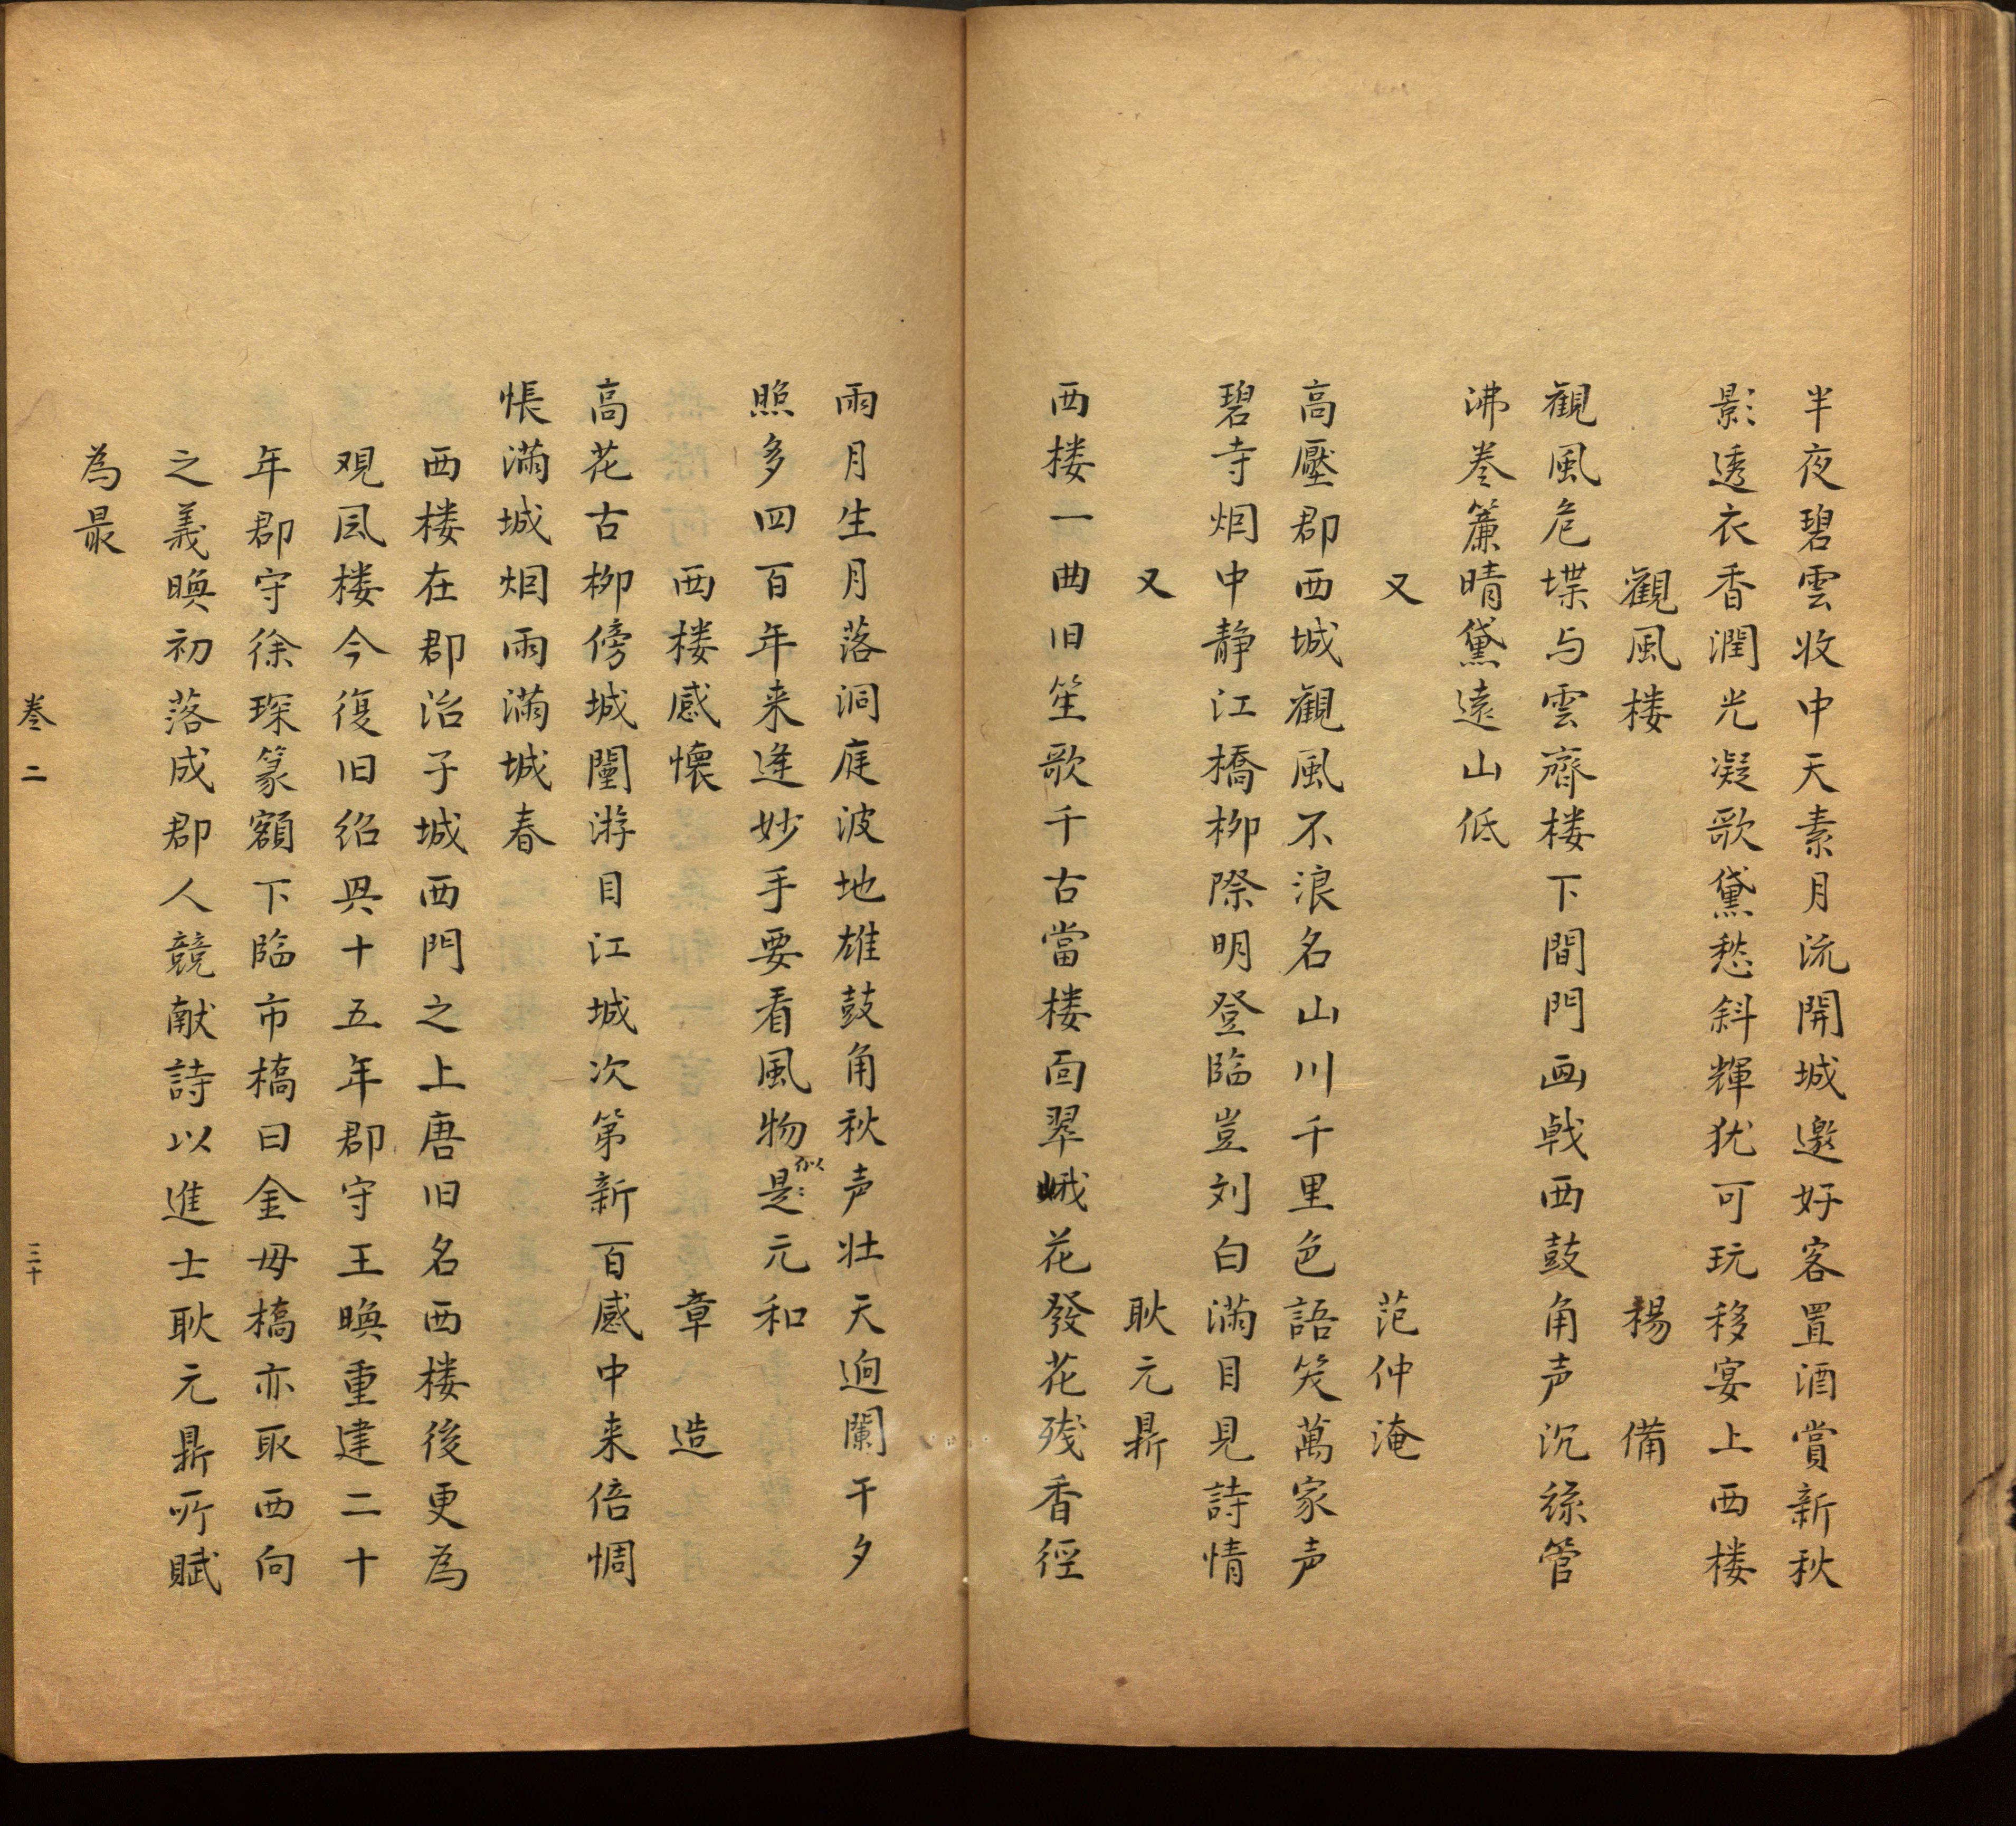 半夜碧雲收中天素月流開城邀好客置酒賞新秋
影透衣香潤光凝歌黛愁斜輝犹可玩移宴上西楼
觀風楼 楊備
觀風危堞与雲齊楼下閶門画戟西鼓角声沉絲管
沸卷簾晴黛遠山低
又 范仲淹
高壓郡西城觀風不浪名山川千里色語笑萬家声
碧寺烟中静江橋柳際明登臨豈刘白滿目見詩情
又 耿元鼎
西楼一曲旧笙歌千古當楼面翠峨花發花残香徑
雨月生月落洞庭波地雄鼓角秋声壮天迥闌干夕
照多四百年来逢妙手要看風物是似元和
西楼感懷 章造
高花古柳傍城闉游目江城次第新百感中来倍惆
悵滿城烟雨滿城春
西楼在郡治子城西門之上唐旧名西楼後更為
观风楼今復旧绍興十五年郡守王㬇重建二十
年郡守徐琛篆額下臨市橋曰金毋橋亦取西向
之義㬇初落成郡人競献詩以進士耿元鼎所賦
為最
卷二 三十